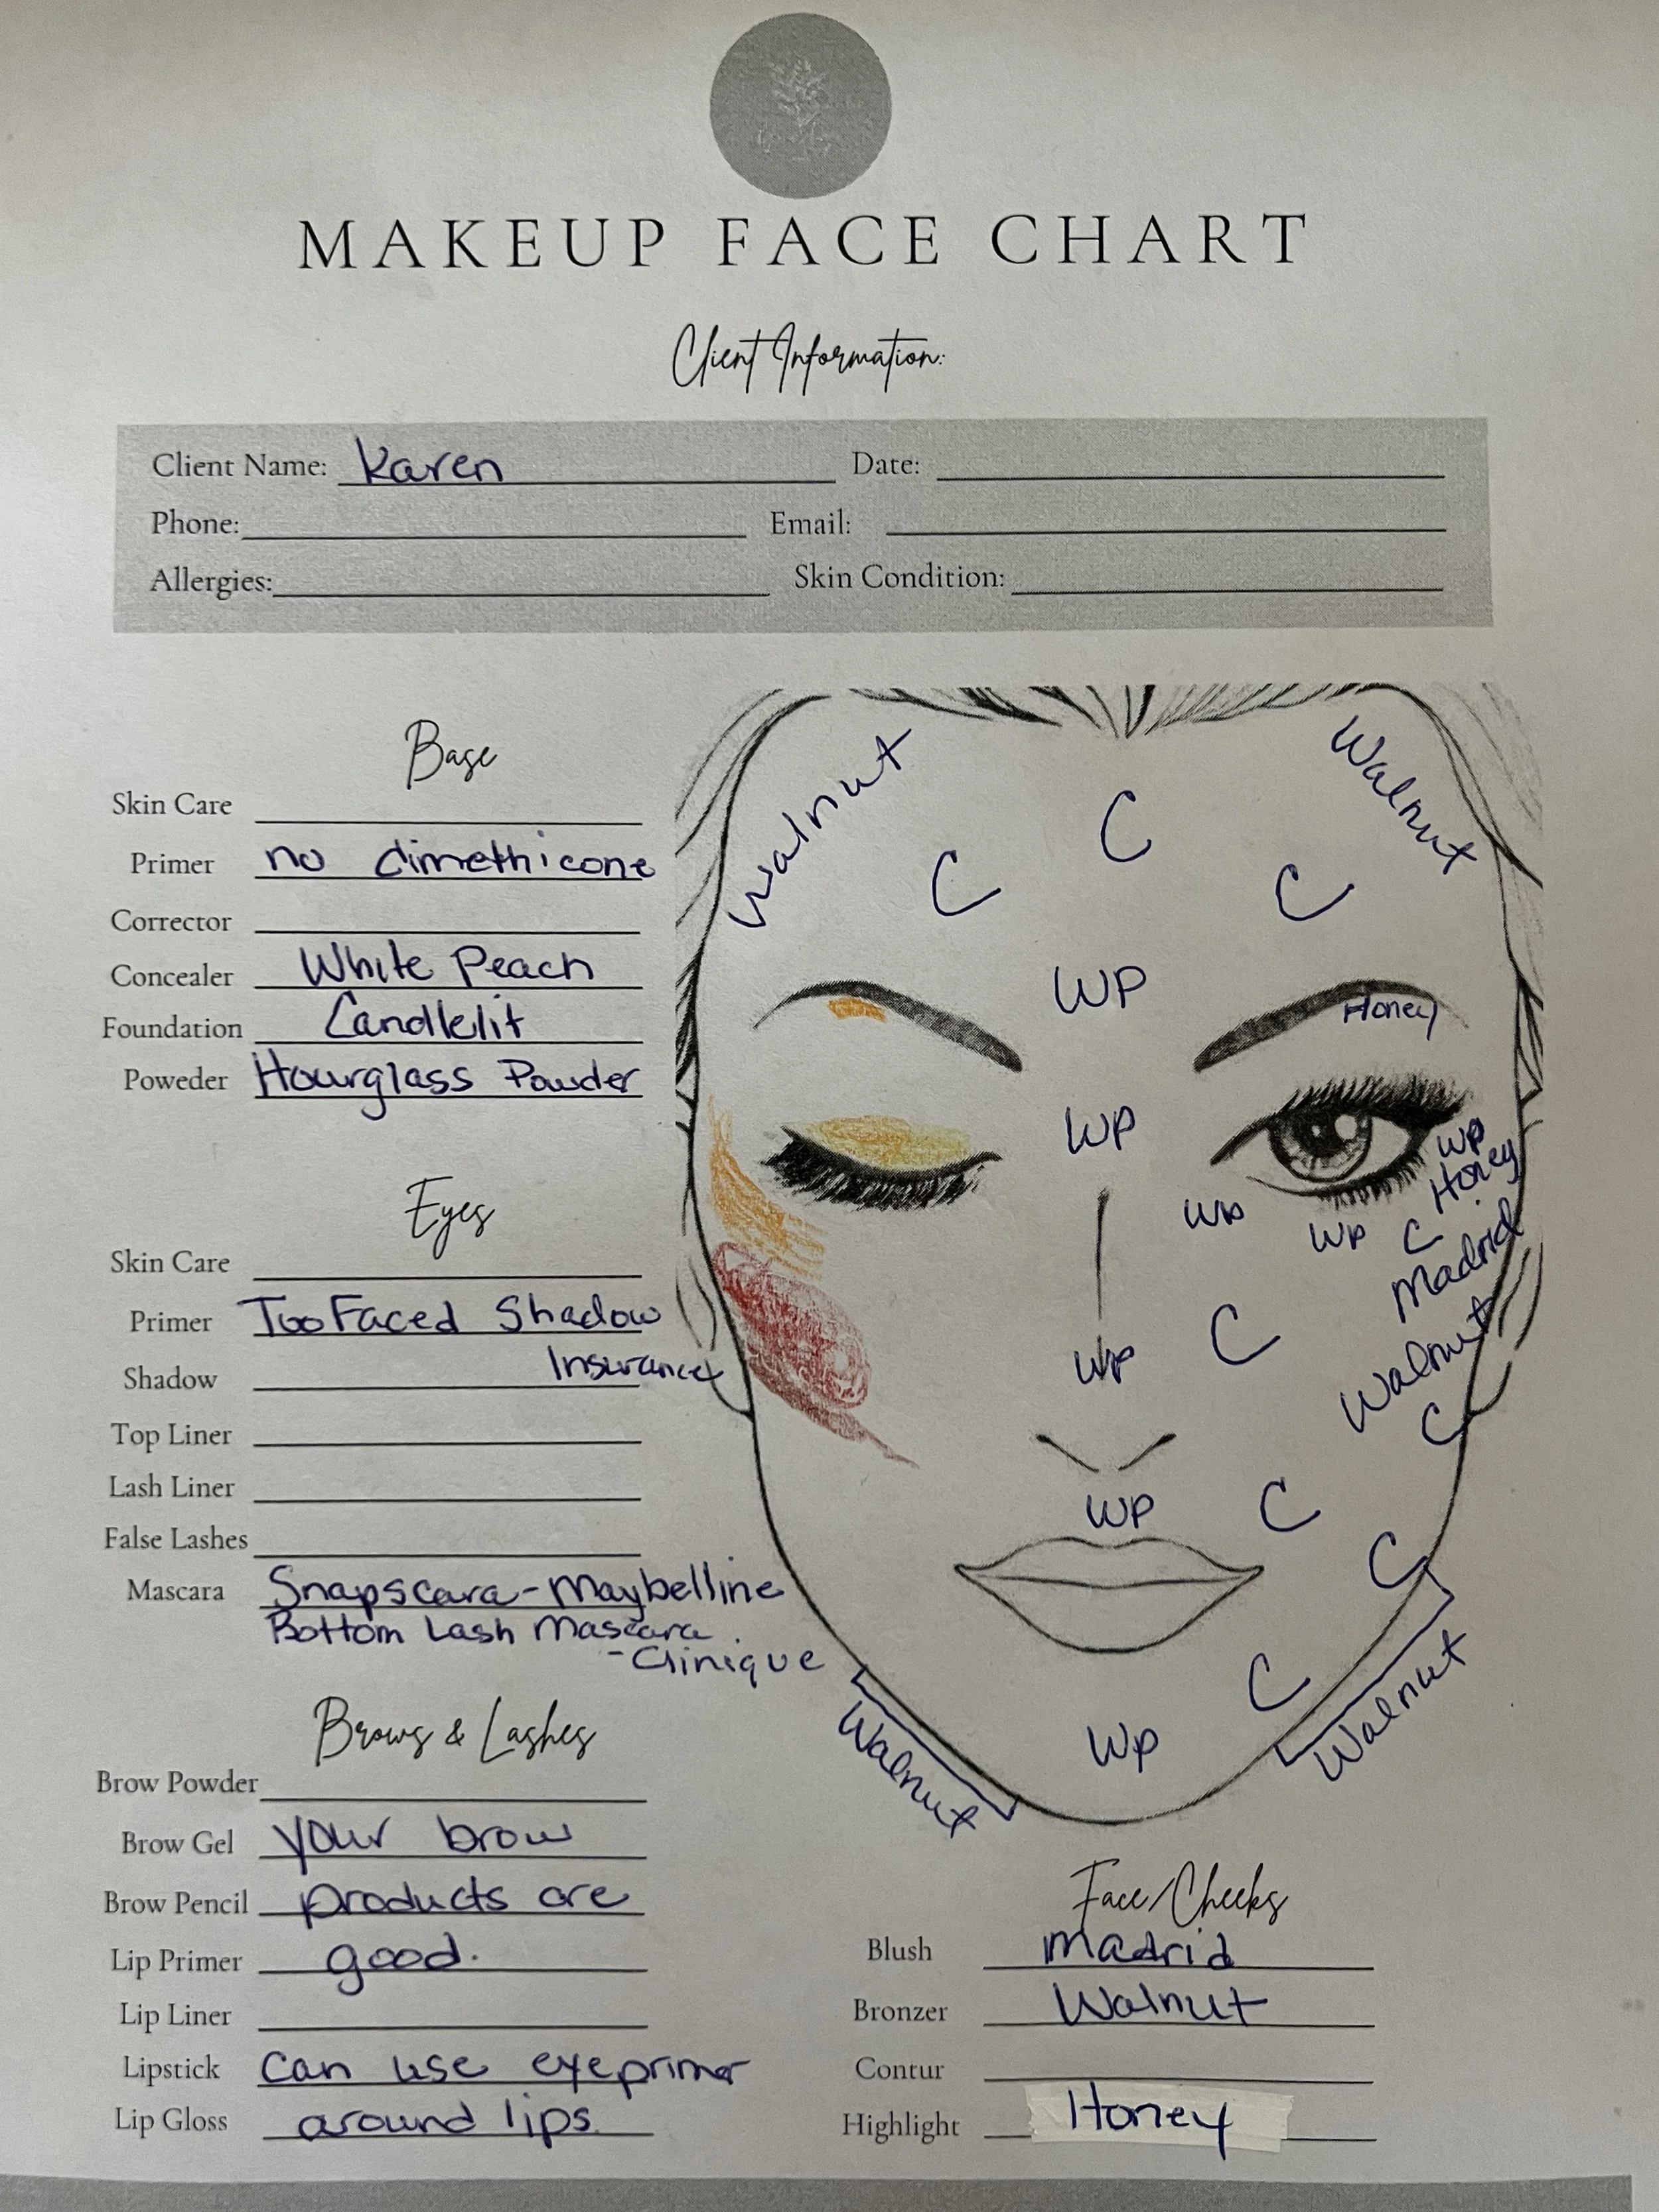 MAKEUP FACE CHART
Client Information:
Client Name: Karen Date:
Phone: Email:
Allergies: Skin Condition:
Base
Skin Care
Primer no dimethicone
Corrector
Concealer White Peach
Foundation Candlelit
Poweder Hourglass Powder
Eyes
Skin Care
Primer Too Faced Shadow
Insurance
Shadow
Top Liner
Lash Liner
False Lashes
Mascara Snapscara - Maybelline
Bottom Lash Mascara
- Clinique
Brows & Lashes
Brow Powder
Brow Gel your brow
Brow Pencil products are
Lip Primer good.
Lip Liner
Lipstick can use eyeprimer
Lip Gloss around lips.
Walnut
Walnut
C
C
C
WP
Honey
WP
WP
Honey
WP
WP
C
Madrid
WP
C
Walnut
C
WP
C
C
C
WP
Walnut
Walnut
Face/Cheeks
Blush Madrid
Bronzer Walnut
Contur
Highlight Honey